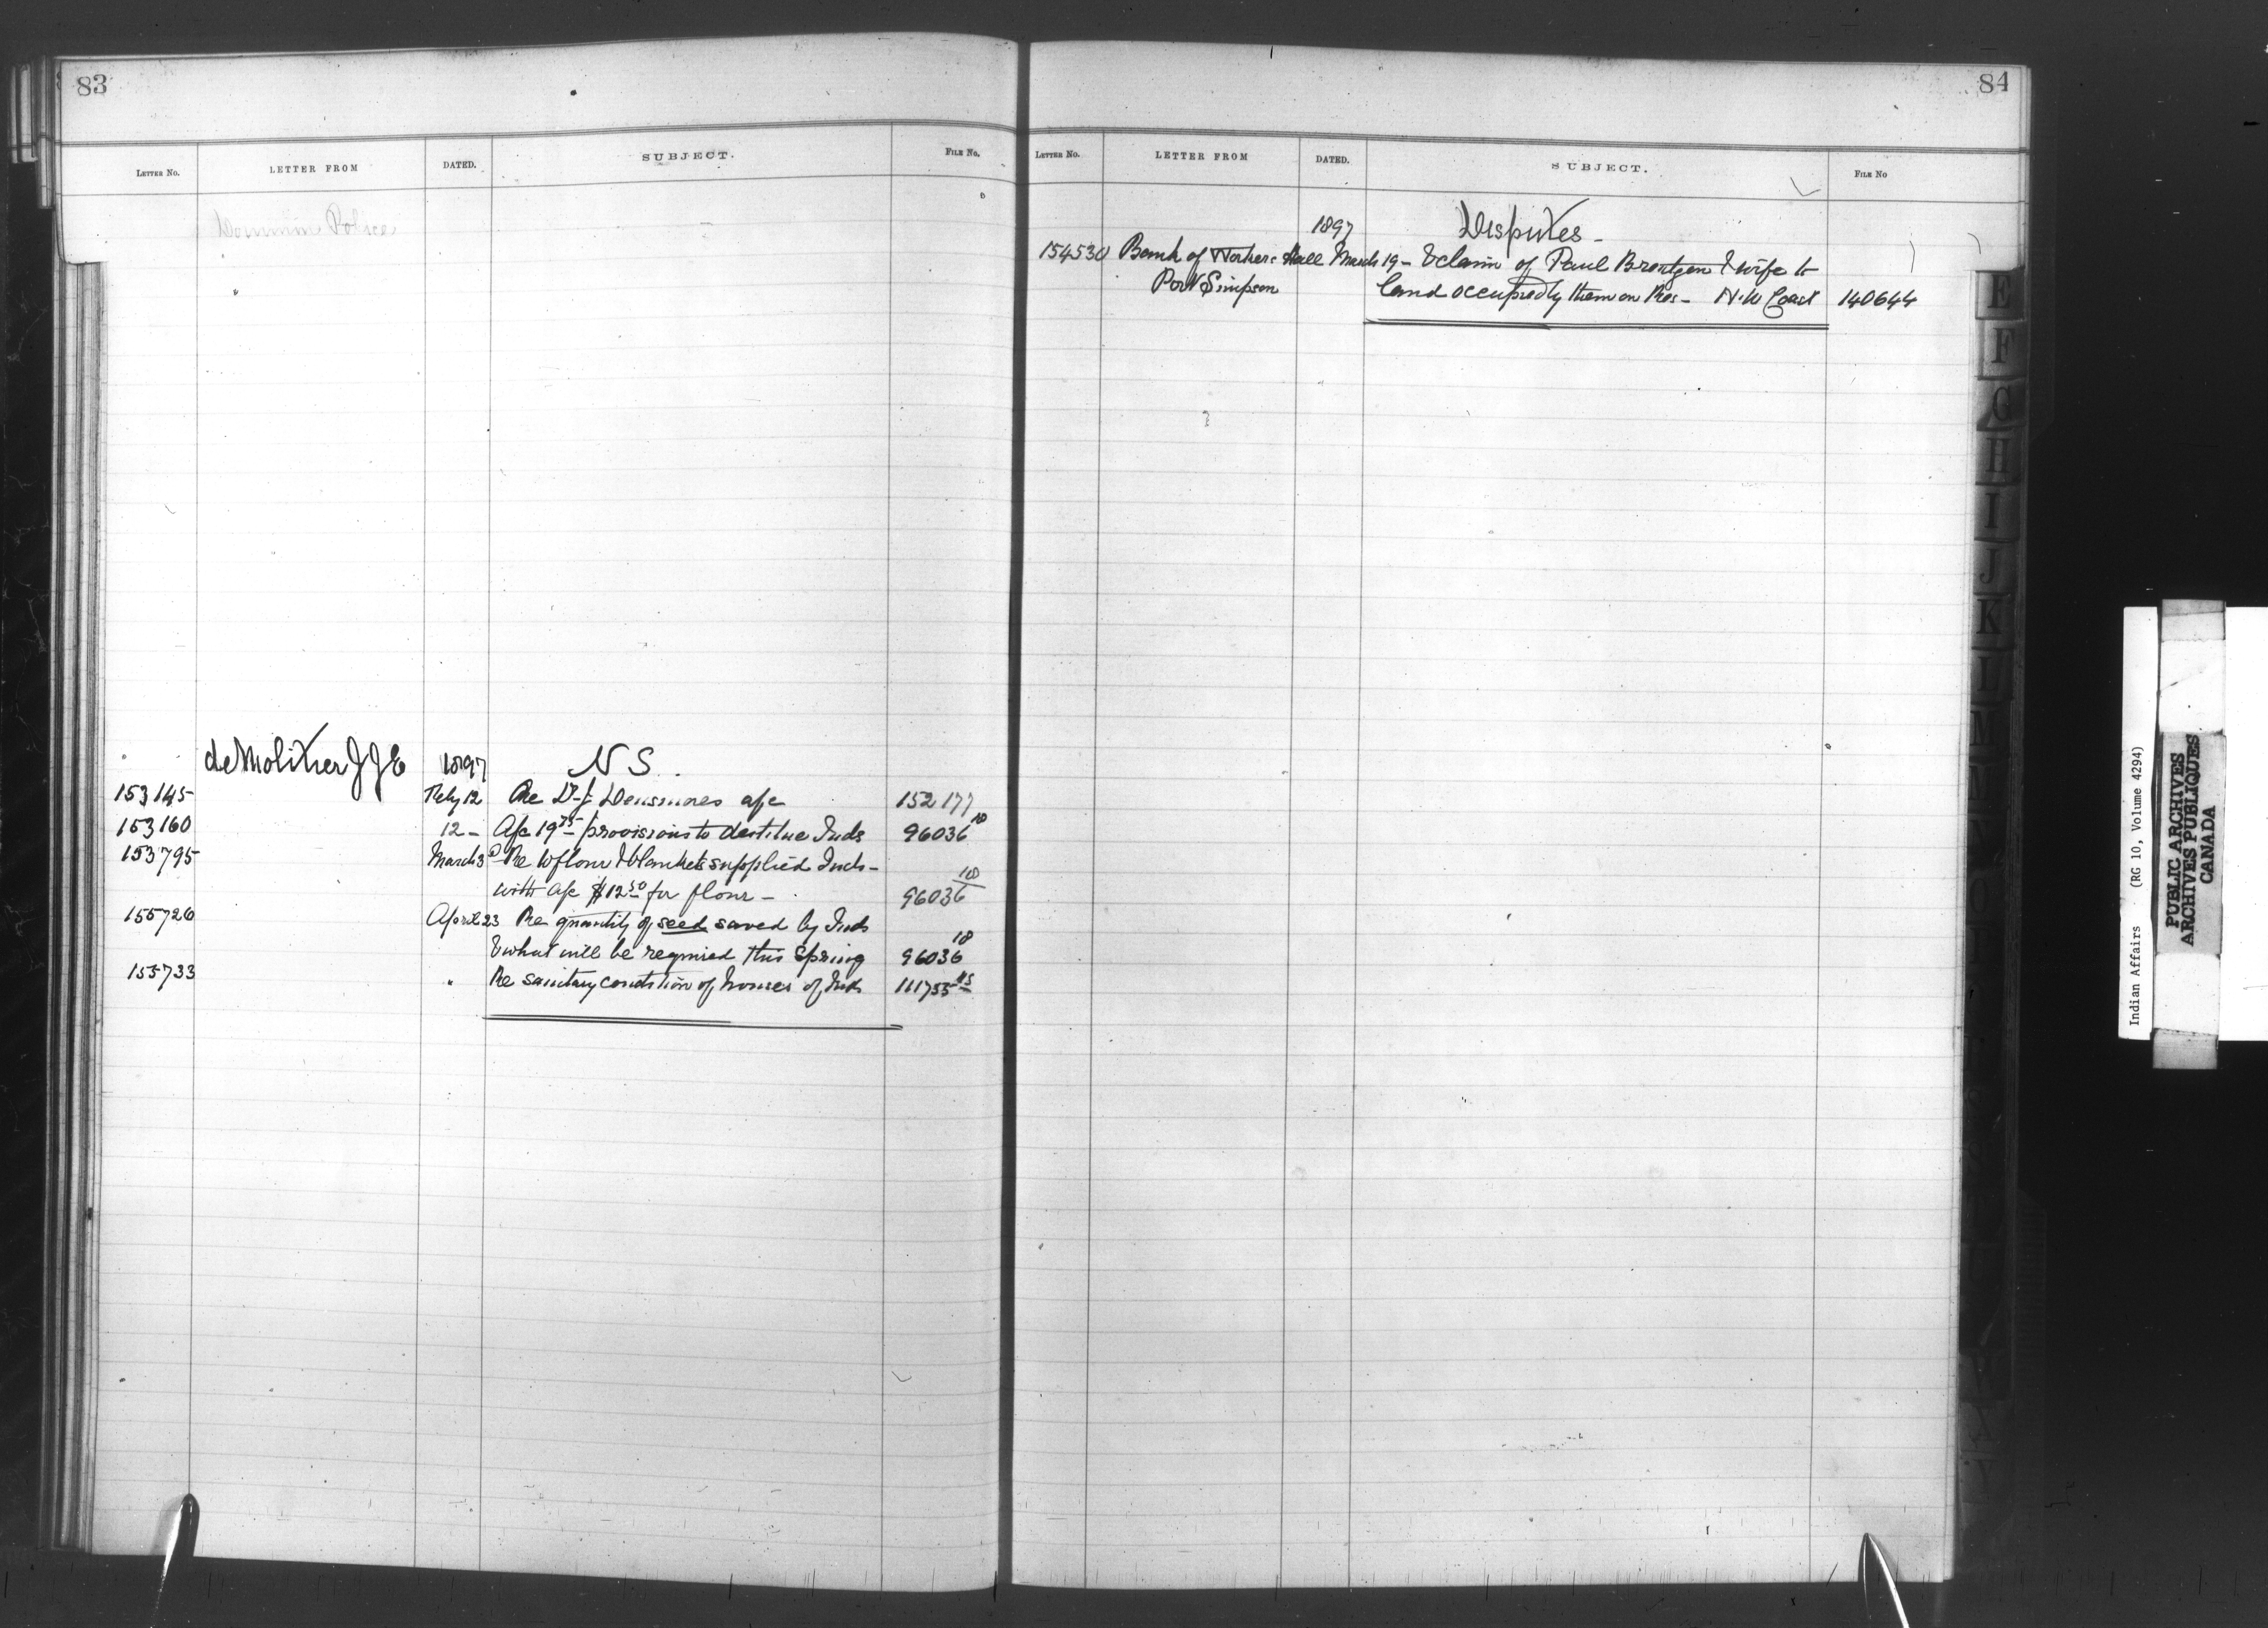 83
LETTER NO. LETTER FROM DATED. SUBJECT. FILE No.
Dominion Police
deMolitor J J E 1897 N S.
153145 Feby 12 Re Dr J Densmores a/c 152177
153160 12 - A/c 19 75 provisions to destitue Inds 96036 18
153795 March 3 Re to flour & blankets supplied Inds -
with a/c $12 50 for flour - 96036 18
155726 April 23 Re quantity of seed saved by Inds
& what will be required this Spring 96036 18
155733 " Re sanitary condition of houses of Inds 111755
84
LETTER NO. LETTER FROM DATED. SUBJECT. FILE No
1897 Disputes -
154530 Band of Workers Hall March 19 - & claim of Paul Brentzen & wife to
Port Simpson land occupied by them on Res - N.W Coast 140644
E
F
G
H
I
J
K
L
M
Indian Affairs (RG 10, Volume 4294)
PUBLIC ARCHIVES
ARCHIVES PUBLIQUES
CANADA